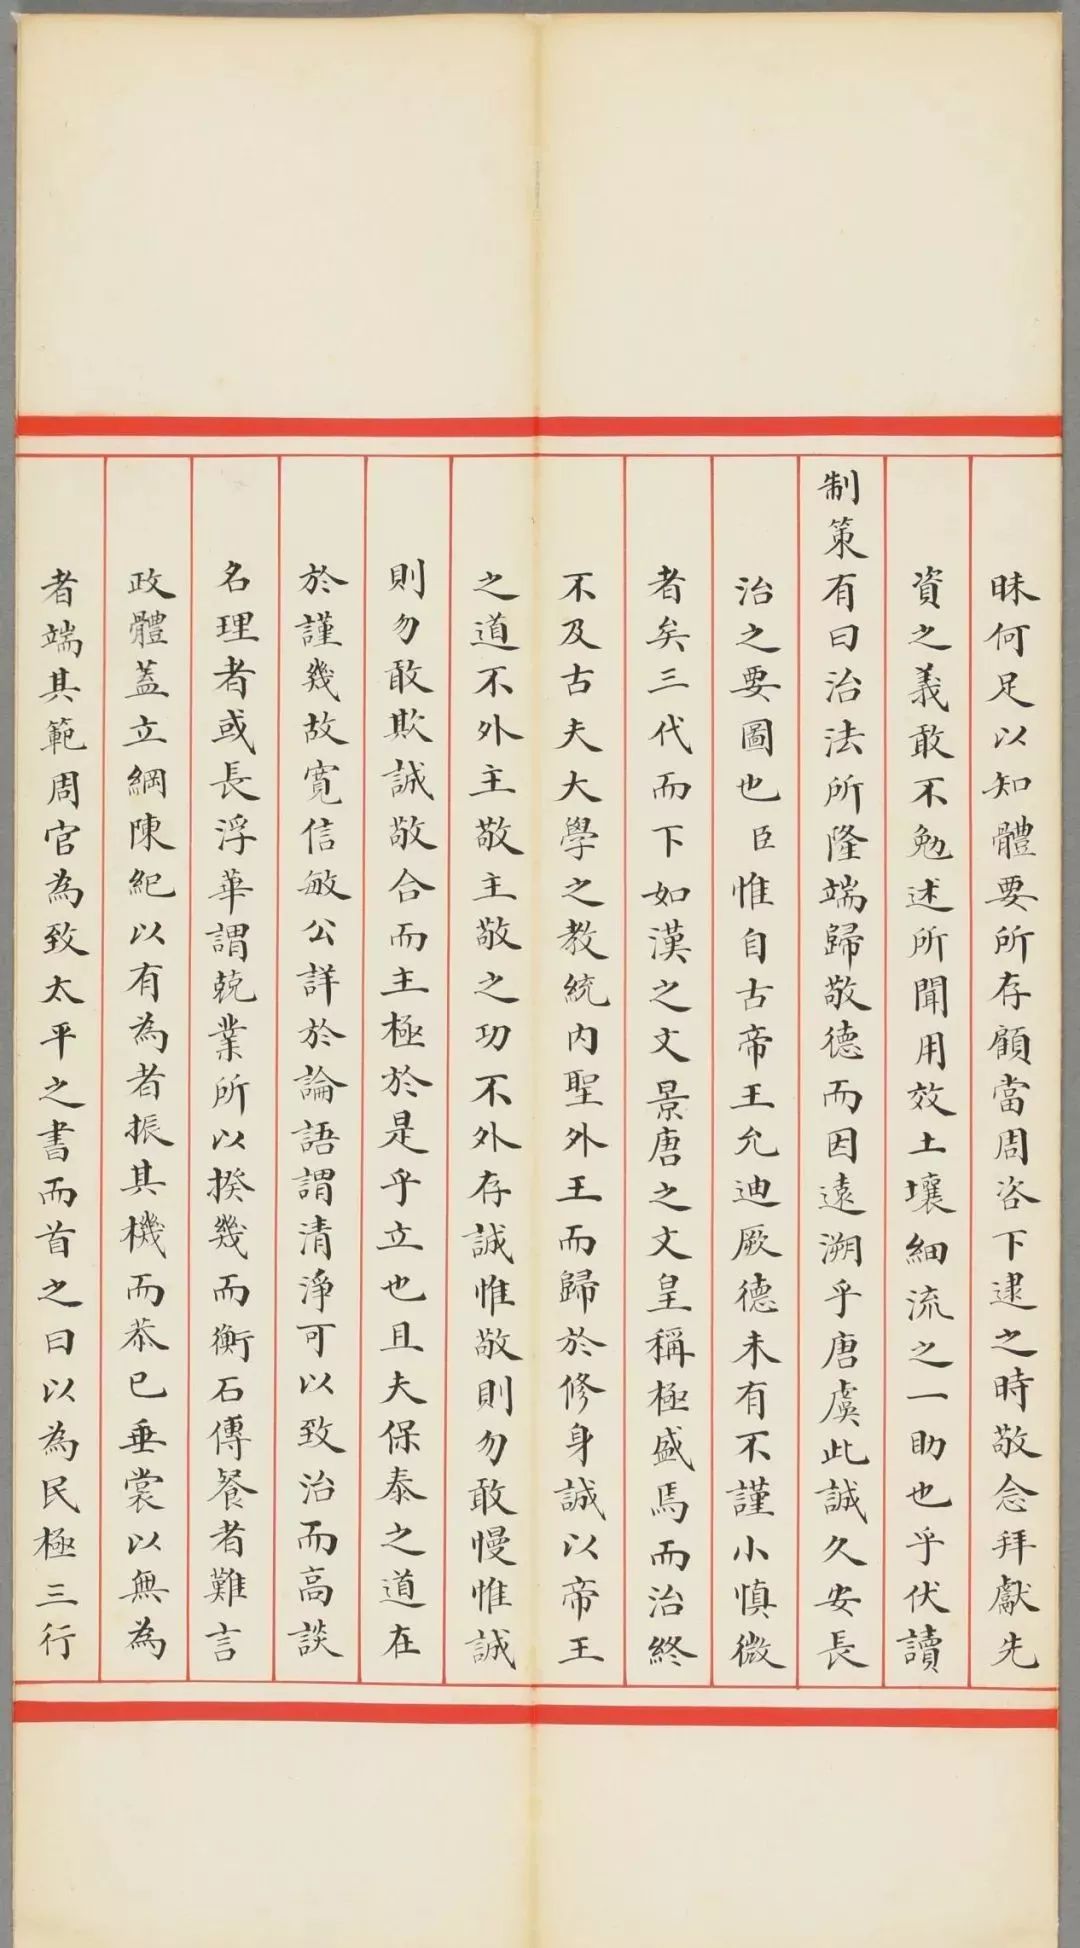 昧何足以知體要所存顧當周咨下逮之時敬念拜獻先
資之義敢不勉述所聞用效土壤細流之一助也乎伏讀
制策有曰治法所隆端歸敬德而因遠溯乎唐虞此誠久安長
治之要圖也臣惟自古帝王允迪厥德未有不謹小慎微
者矣三代而下如漢之文景唐之文皇稱極盛焉而治終
不及古夫大學之教統內聖外王而歸於修身誠以帝王
之道不外主敬主敬之功不外存誠惟敬則勿敢慢惟誠
則勿敢欺誠敬合而主極於是乎立也且夫保泰之道在
於謹幾故寬信敏公詳於論語謂清淨可以致治而高談
名理者或長浮華謂兢業所以揆幾而衡石傳餐者難言
政體蓋立綱陳紀以有為者振其機而恭己垂裳以無為
者端其範周官為致太平之書而首之曰以為民極三行